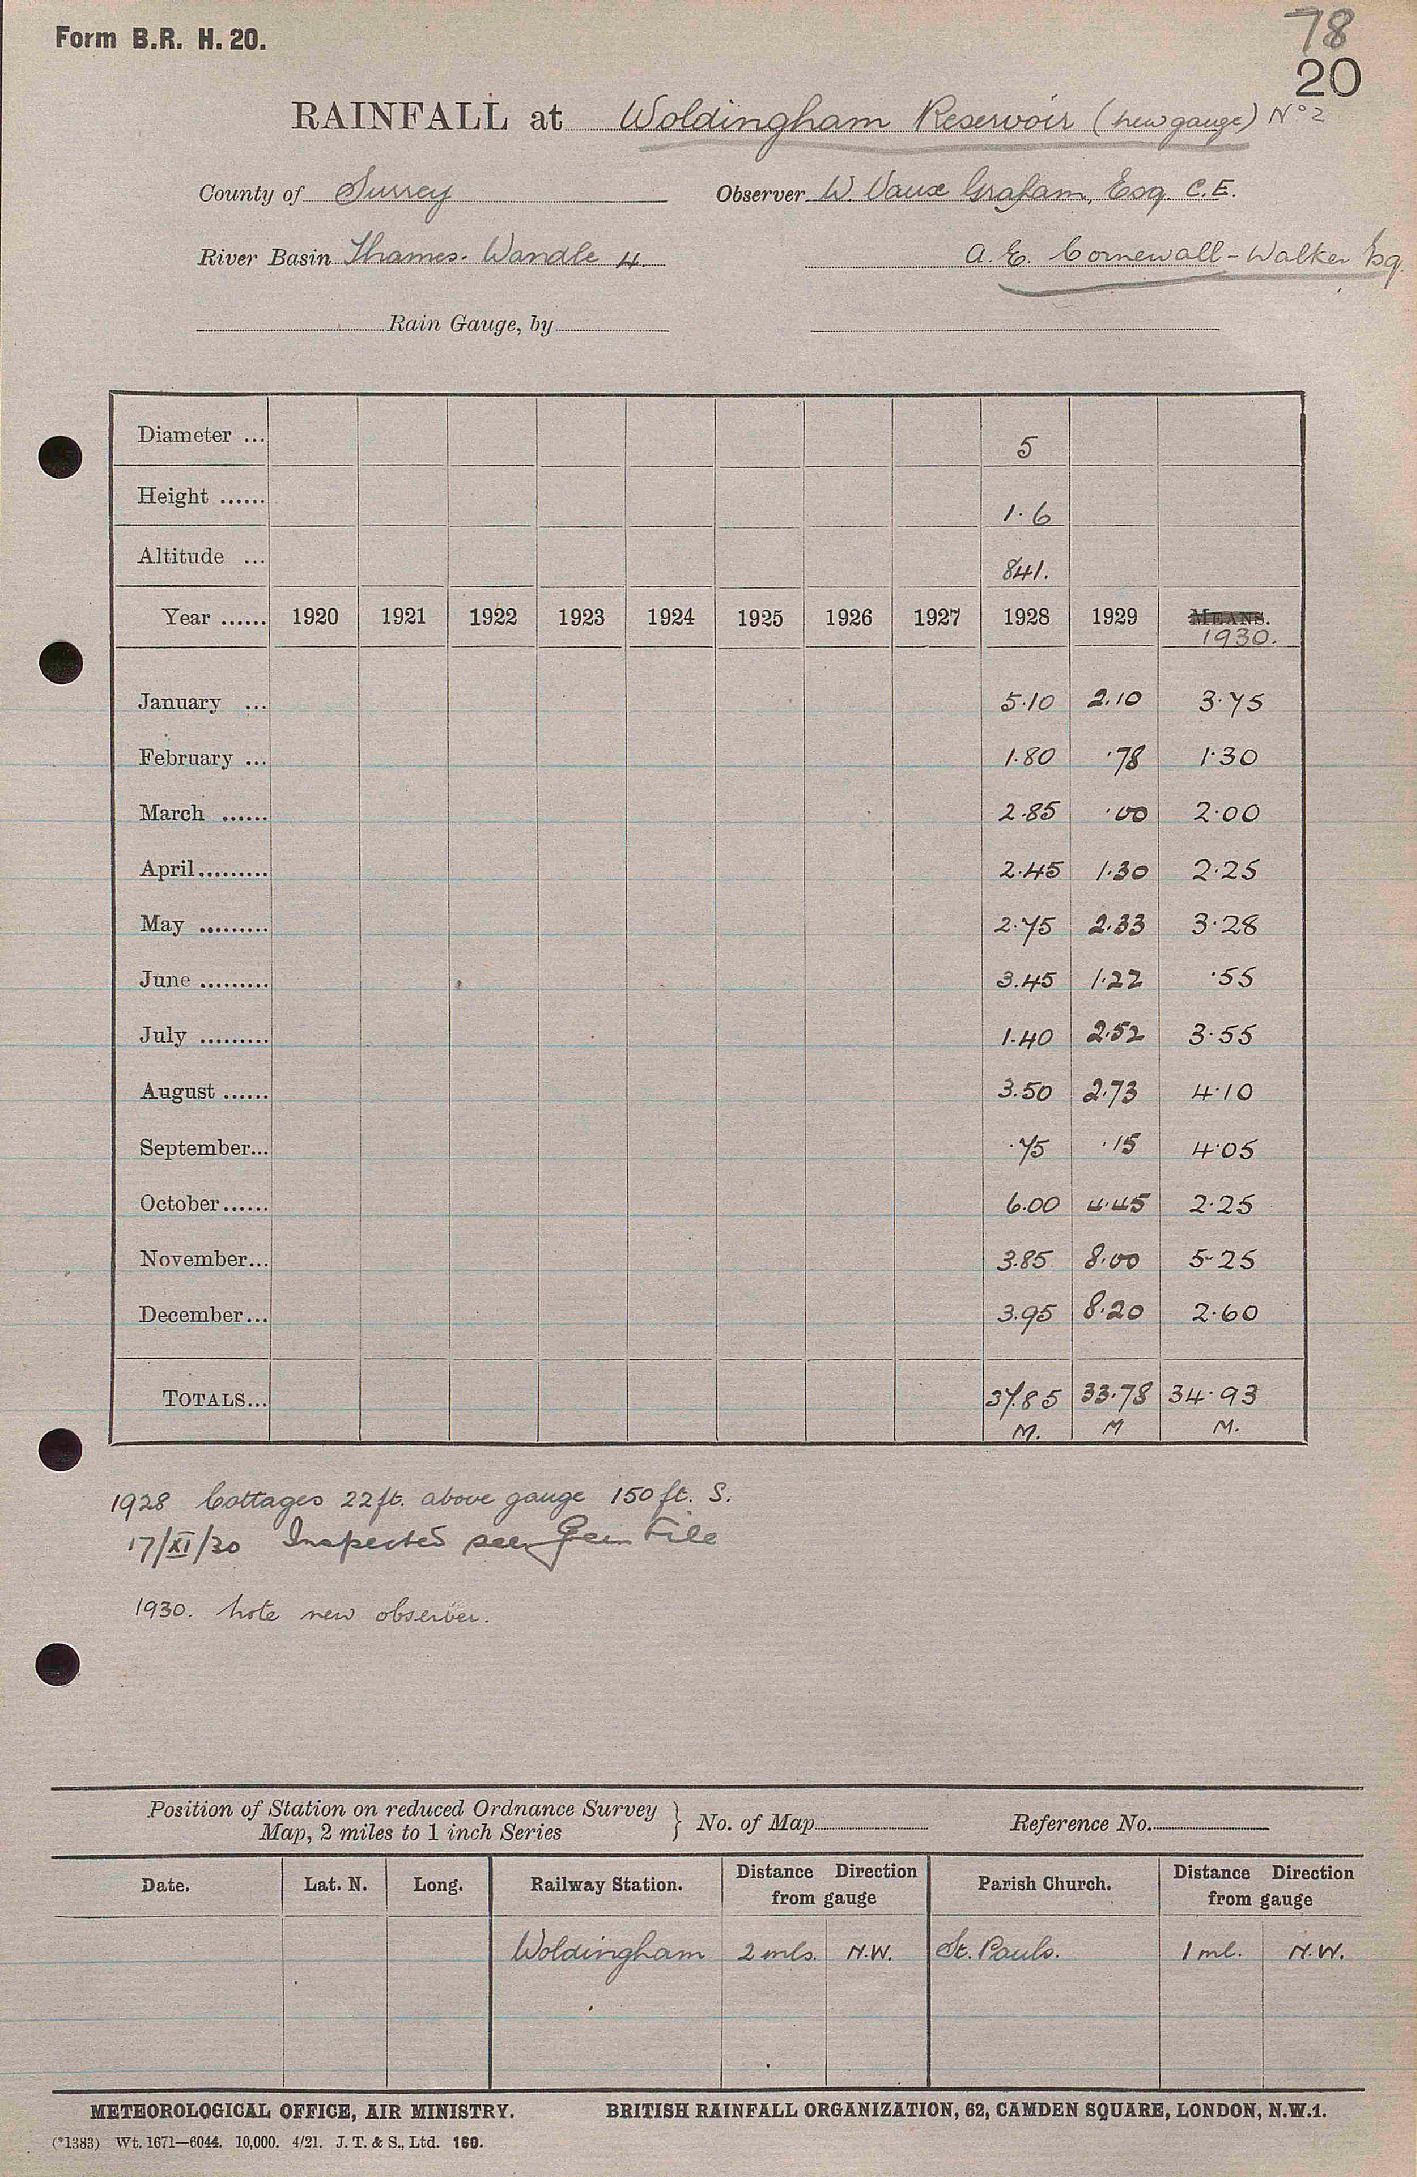 Form B.R. H. 20.
78
20
RAINFALL at Woldingham Reservoir (new gauge) No 2
County of Surrey Observer W. Vaux Graham, Esq. C.E.
River Basin Thames. Wandle 4. A. E. Cornewall-Walker Esq.
Rain Gauge, by
Diameter ... 5
Height ...... 1.6
Altitude ... 841.
Year ...... 1920 1921 1922 1923 1924 1925 1926 1927 1928 1929 MEANS.
1930.
January ... 5.10 2.10 3.75
February ... 1.80 .78 1.30
March ...... 2.85 .00 2.00
April......... 2.45 1.30 2.25
May ......... 2.75 2.33 3.28
June ......... 3.45 1.22 .55
July ......... 1.40 2.52 3.55
August ...... 3.50 2.73 4.10
September... .75 .15 4.05
October...... 6.00 4.45 2.25
November... 3.85 8.00 5.25
December... 3.95 8.20 2.60
TOTALS... 37.85 33.78 34.93
M. M M.
1928 Cottages 22ft. above gauge 150 ft. S.
17/XI/30 Inspected see Gen File
1930. note new observer.
Position of Station on reduced Ordnance Survey
Map, 2 miles to 1 inch Series } No. of Map Reference No.
Date. Lat. N. Long. Railway Station. Distance Direction from gauge Parish Church. Distance Direction from gauge
Woldingham 2 mls. N.W. St. Pauls. 1 ml. N.W.
METEOROLOGICAL OFFICE, AIR MINISTRY. BRITISH RAINFALL ORGANIZATION, 62, CAMDEN SQUARE, LONDON, N.W.1.
(*1383) Wt. 1671—6044. 10,000. 4/21. J. T. & S., Ltd. 160.